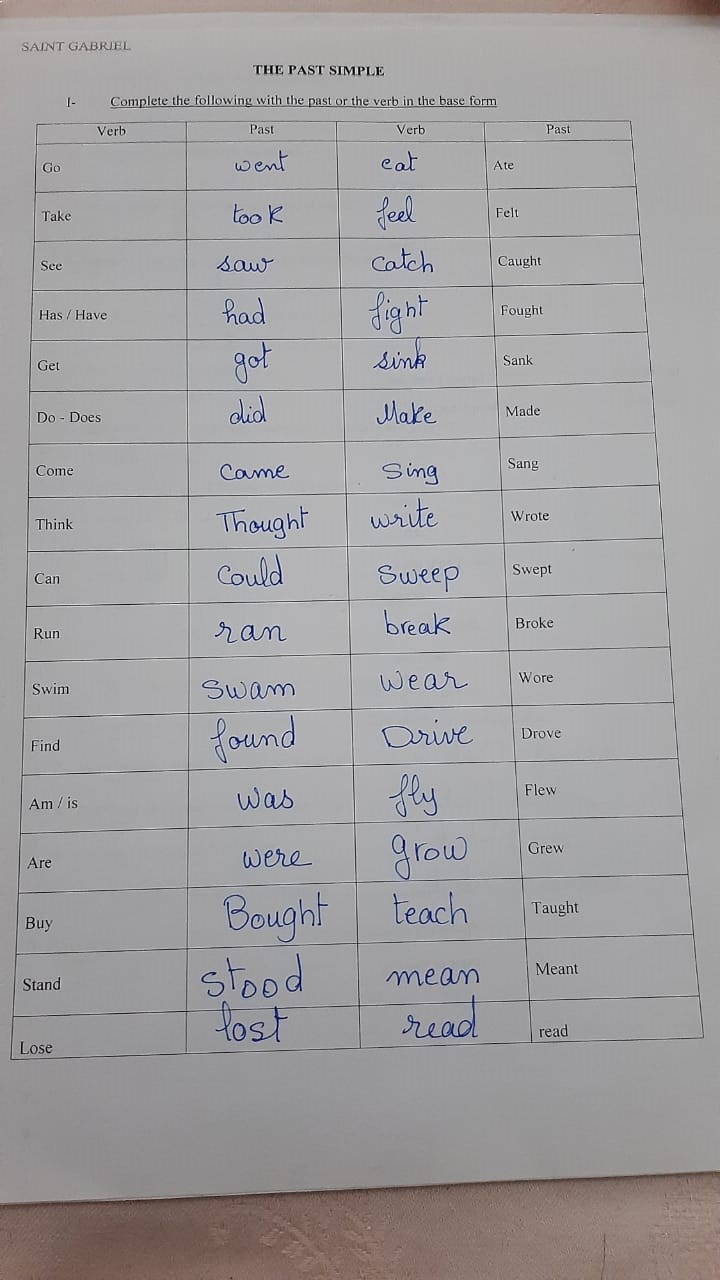 SAINT GABRIEL
THE PAST SIMPLE
I- Complete the following with the past or the verb in the base form
Verb Past Verb Past
Go went eat Ate
Take took feel Felt
See saw catch Caught
Has / Have had fight Fought
Get got sink Sank
Do - Does did Make Made
Come came Sing Sang
Think Thought write Wrote
Can Could Sweep Swept
Run ran break Broke
Swim Swam Wear Wore
Find found Drive Drove
Am / is was fly Flew
Are were grow Grew
Buy Bought teach Taught
Stand stood mean Meant
Lose lost read read